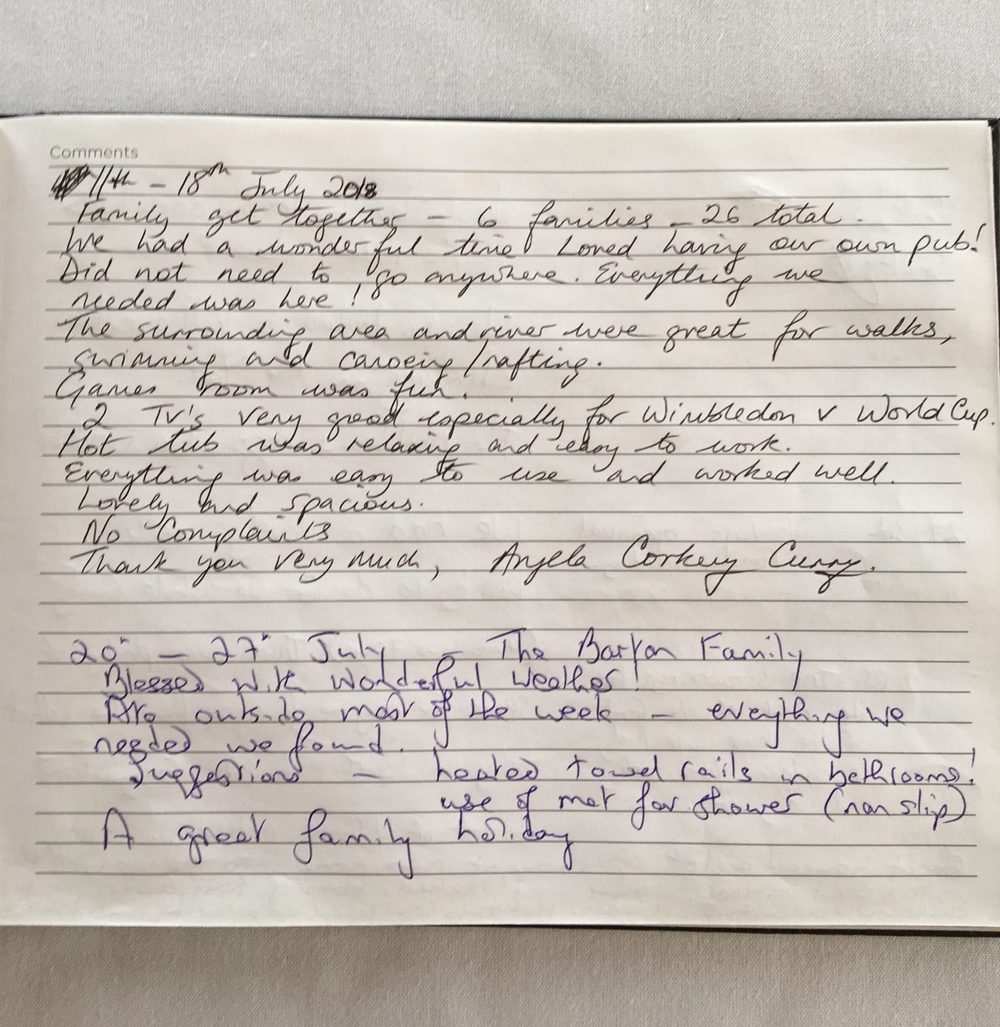 Comments
11th - 18th July 2018
Family get together - 6 families - 26 total.
We had a wonderful time! Loved having our own pub!
Did not need to go anywhere. Everything we
needed was here!
The surrounding area and river were great for walks,
swimming and canoeing/rafting.
Games room was fun.
2 TV's very good especially for Wimbledon v World Cup.
Hot tub was relaxing and easy to work.
Everything was easy to use and worked well.
Lovely and spacious.
No Complaints
Thank you very much, Angela Corkery Curry.
20th - 27th July - The Barton Family
Blessed with wonderful weather!
Ate outside most of the week - everything we
needed we found.
Suggestions - heated towel rails in bathrooms!
use of mat for shower (non slip)
A great family holiday